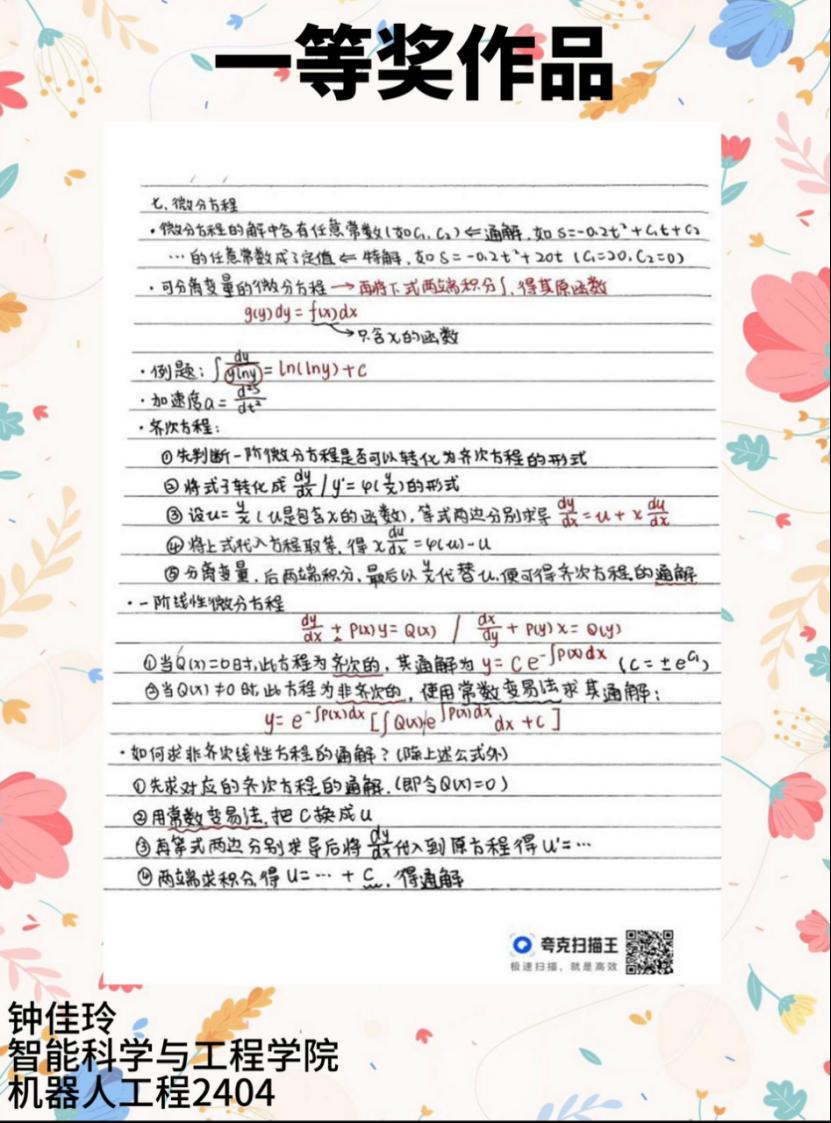 一等奖作品
七、微分方程
·微分方程的解中含有任意常数(如C₁, C₂) ⇐ 通解, 如 S=-0.2t²+C₁t+C₂
… 的任意常数成了定值 ⇐ 特解, 如 S=-0.2t²+20t (C₁=20, C₂=0)
·可分离变量的微分方程 → 再将下式两端积分∫, 得其原函数
g(y)dy = f(x)dx
→只含x的函数
·例题: ∫ dy/(ylny) = ln(lny)+C
·加速度a = d²s/dt²
·齐次方程:
①先判断一阶微分方程是否可以转化为齐次方程的形式
②将式子转化成 dy/dx / y'=φ(y/x)的形式
③设u=y/x (u是包含x的函数), 等式两边分别求导 dy/dx = u + x du/dx
④将上式代入方程取等, 得 x du/dx = φ(u)-u
⑤分离变量, 后两端积分, 最后以y/x代替u, 便可得齐次方程的通解
·一阶线性微分方程
dy/dx + P(x)y = Q(x) / dx/dy + P(y)x = Q(y)
①当Q(x)=0时, 此方程为齐次的, 其通解为 y = Ce^(-∫P(x)dx) (C=±e^(C₁))
②当Q(x)≠0时, 此方程为非齐次的, 使用常数变易法求其通解:
y = e^(-∫P(x)dx) [∫Q(x)e^(∫P(x)dx) dx + C]
·如何求非齐次线性方程的通解? (除上述公式外)
①先求对应的齐次方程的通解. (即令Q(x)=0)
②用常数变易法, 把C换成u
③再等式两边分别求导后将 dy/dx 代入到原方程得 u'=…
④两端求积分, 得 u=… + C, 得通解
夸克扫描王
极速扫描，就是高效
钟佳玲
智能科学与工程学院
机器人工程2404